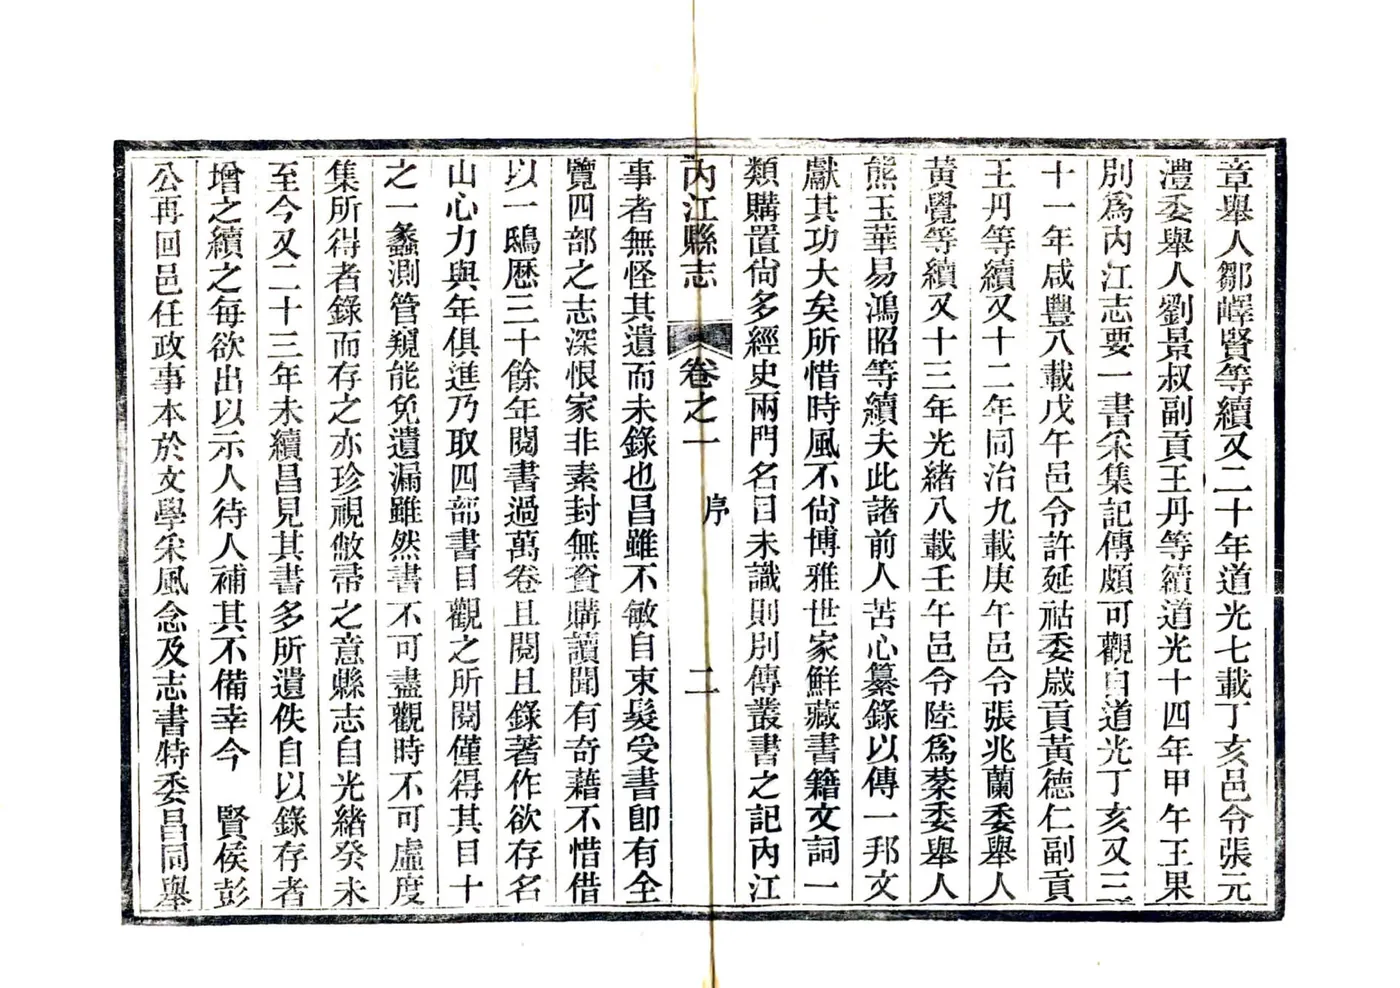 章舉人鄒嶧賢等續又二十年道光七載丁亥邑令張元
澧委舉人劉景叔副貢王丹等續道光十四年甲午王果
別爲內江志要一書采集記傳頗可觀自道光丁亥又三
十一年咸豐八載戊午邑令許延祜委歲貢黃德仁副貢
王丹等續又十二年同治九載庚午邑令張兆蘭委舉人
黃覺等續又十三年光緒八載壬午邑令陸爲棻委舉人
熊玉華易鴻昭等續夫此諸前人苦心纂錄以傳一邦文
獻其功大矣所惜時風不尙博雅世家鮮藏書籍文詞一
類購置尙多經史兩門名目未識則別傳叢書之記內江
內江縣志 卷之一 序 二
事者無怪其遺而未錄也昌雖不敏自束髮受書卽有全
覽四部之志深恨家非素封無貲購讀聞有奇藉不惜借
以一鴟歷三十餘年閱書過萬卷且閱且錄著作欲存名
山心力與年俱進乃取四部書目觀之所閱僅得其目十
之一蠡測管窺能免遺漏雖然書不可盡觀時不可虛度
集所得者錄而存之亦珍視敝帚之意縣志自光緒癸未
至今又二十三年未續昌見其書多所遺佚自以錄存者
增之續之每欲出以示人待人補其不備幸今 賢侯彭
公再回邑任政事本於文學采風念及志書特委昌同舉